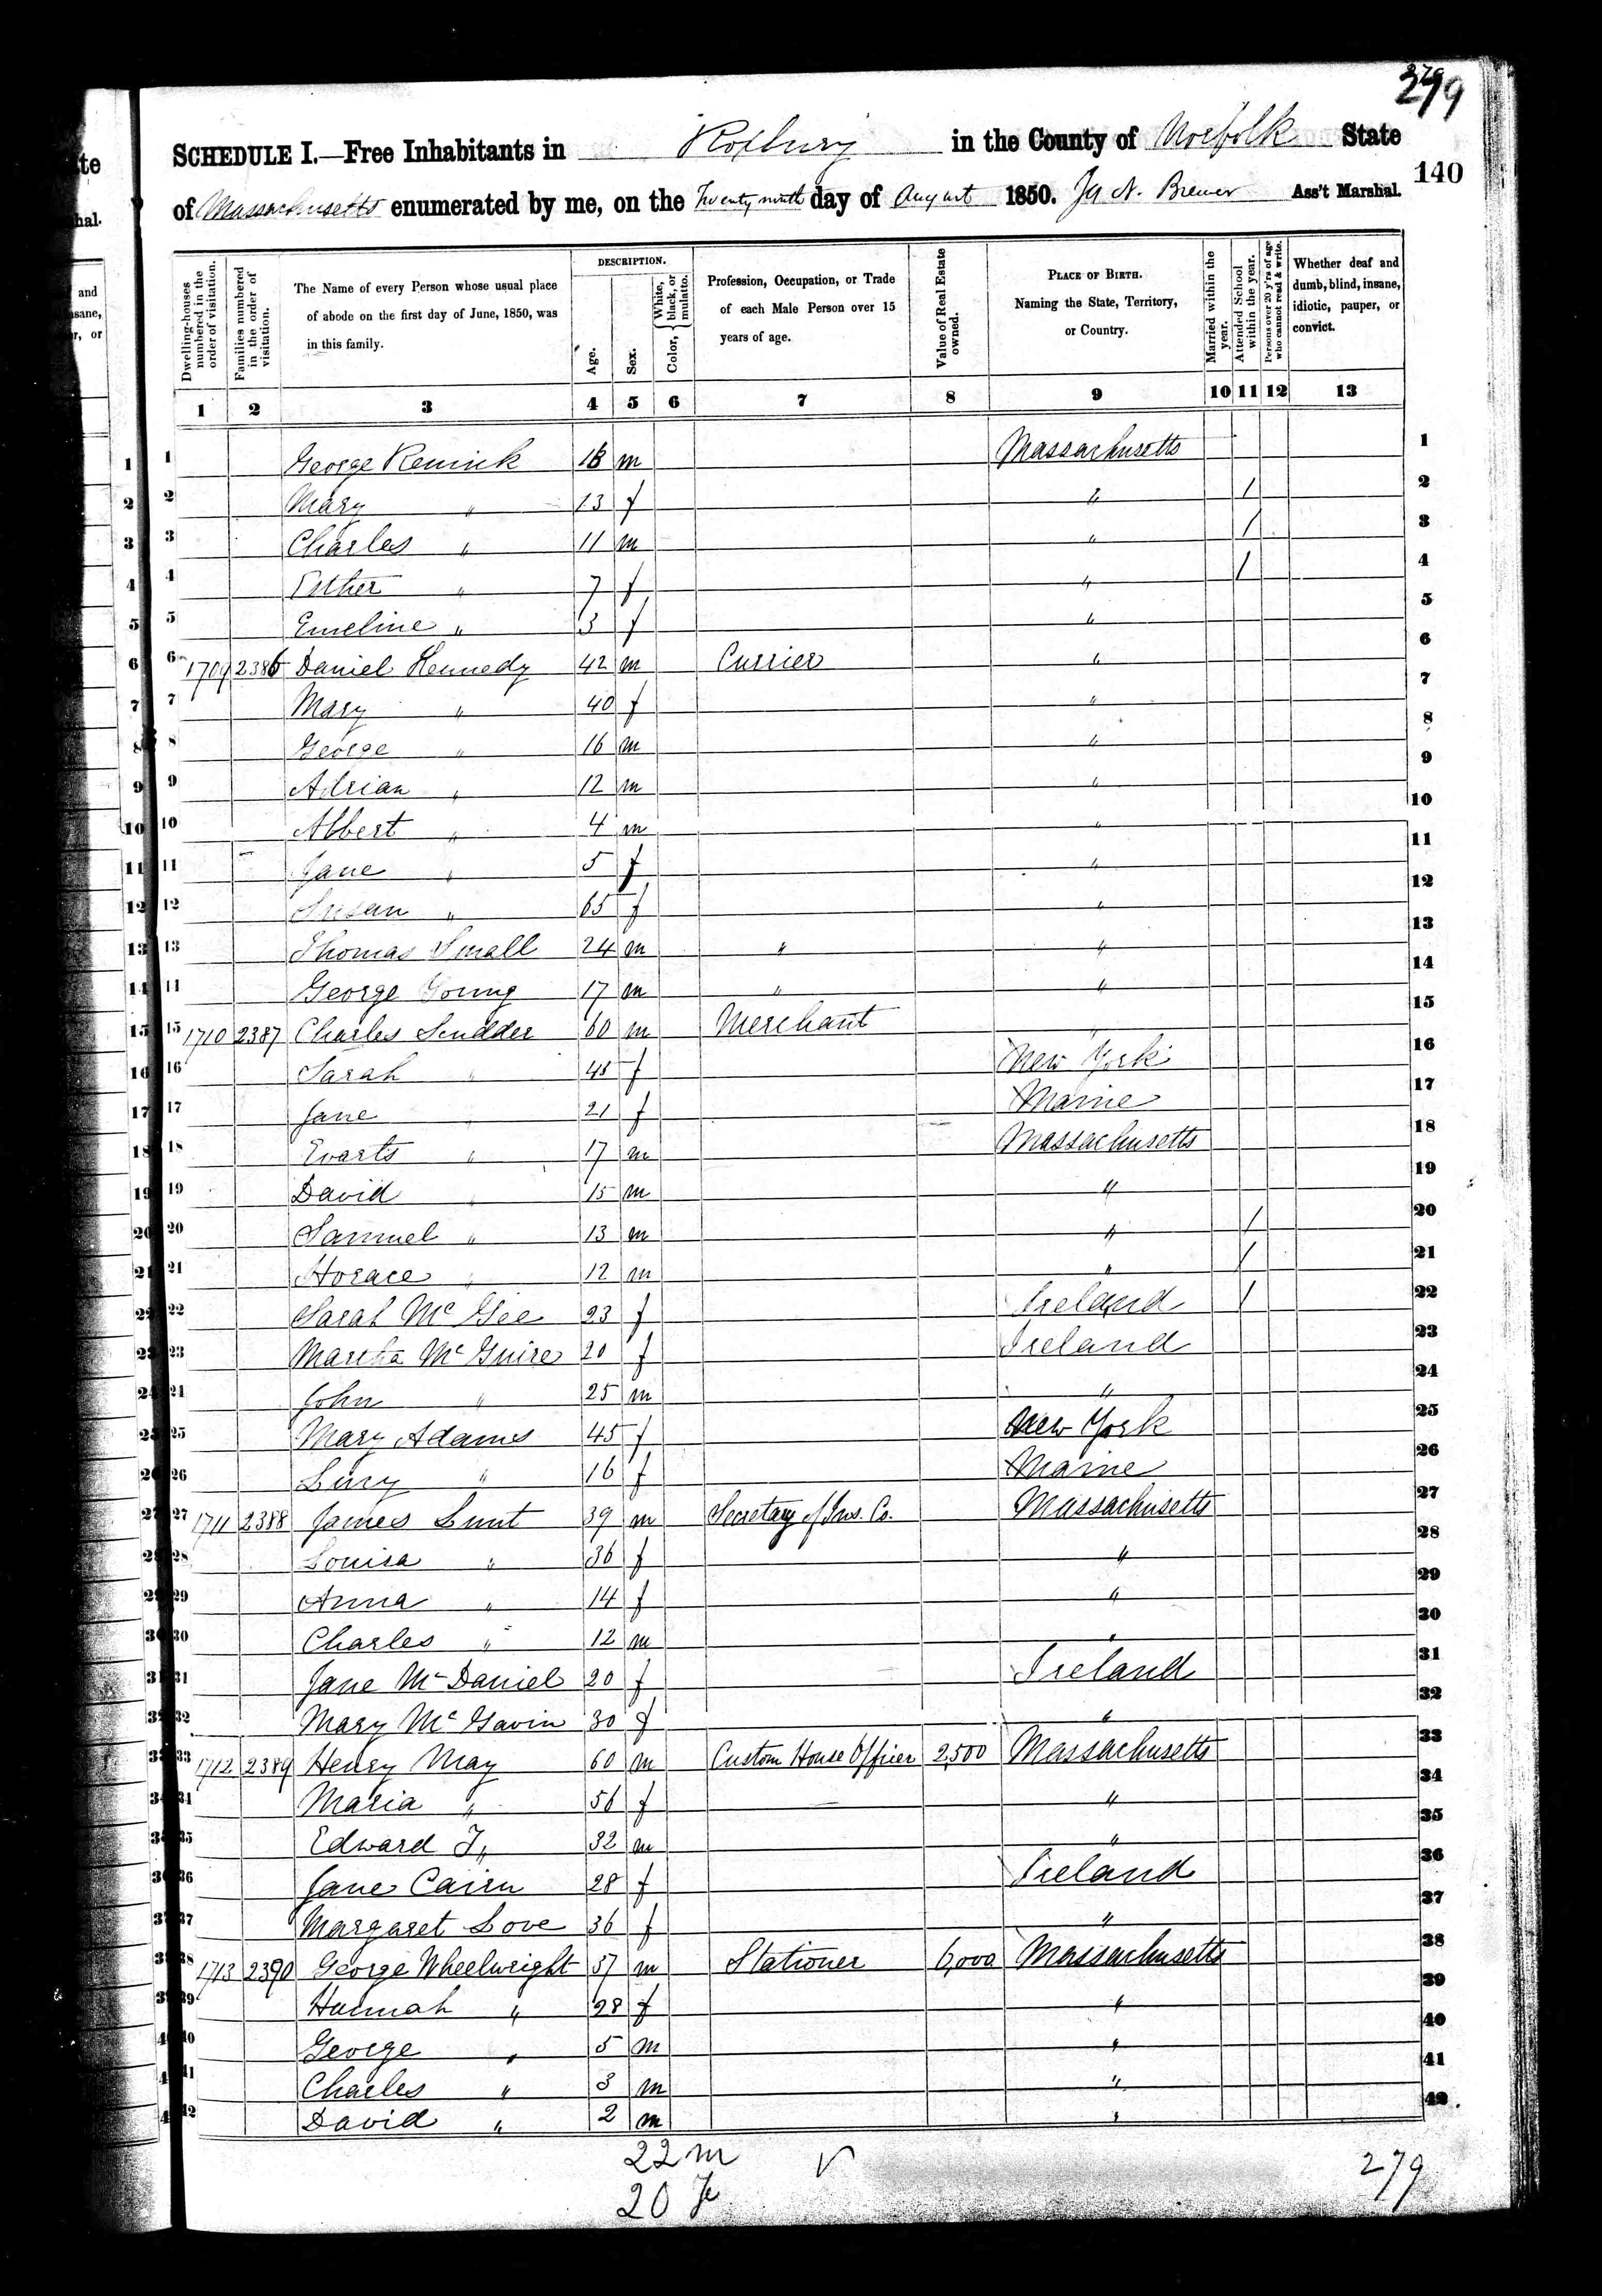 279
SCHEDULE I.—Free Inhabitants in Roxbury in the County of Norfolk State
140
of Massachusetts enumerated by me, on the Twenty ninth day of August 1850. Brewer Ass't Marshal.
Dwelling-houses numbered in the order of visitation.
Families numbered in the order of visitation.
The Name of every Person whose usual place of abode on the first day of June, 1850, was in this family.
DESCRIPTION.
Age.
Sex.
Color, { White, black, or mulatto.
Profession, Occupation, or Trade of each Male Person over 15 years of age.
Value of Real Estate owned.
PLACE OF BIRTH. Naming the State, Territory, or Country.
Married within the year.
Attended School within the year.
Persons over 20 y'rs of age who cannot read & write.
Whether deaf and dumb, blind, insane, idiotic, pauper, or convict.
1 2 3 4 5 6 7 8 9 10 11 12 13
1 George 16 m Massachusetts 1
2 Mary " 13 f " / 2
3 Charles " 11 m " / 3
4 Esther " 7 f " / 4
5 Emeline " 3 f " 5
6 1709 2386 Daniel Kennedy 42 m Currier " 6
7 Mary " 40 f " 7
8 George " 16 m " 8
9 Adrian " 12 m " 9
10 Albert " 4 m " 10
11 Jane " 5 f " 11
12 Susan " 65 f " 12
13 Thomas Small 24 m " " 13
14 George Young 17 m " " 14
15 1710 2387 Charles Scudder 60 m Merchant " 15
16 Sarah " 45 f New York 16
17 Jane " 21 f Maine 17
18 Evarts " 17 m Massachusetts 18
19 David " 15 m " 19
20 Samuel " 13 m " / 20
21 Horace " 12 m " / 21
22 Sarah Mc Gee 23 f Ireland / 22
23 Martha Mc Guire 20 f Ireland 23
24 John " 25 m " 24
25 Mary Adams 45 f New York 25
26 Lucy " 16 f Maine 26
27 1711 2388 James Lunt 39 m Secretary of Ins. Co. Massachusetts 27
28 Louisa " 36 f " 28
29 Anna " 14 f " 29
30 Charles " 12 m " 30
31 Jane Mc Daniel 20 f Ireland 31
32 Mary Mc Gavin 30 f " 32
33 1712 2389 Henry May 60 m Custom House Officer 2,500 Massachusetts 33
34 Maria " 56 f " 34
35 Edward " 32 m " 35
36 Jane Cairn 28 f Ireland 36
37 Margaret Love 36 f " 37
38 1713 2390 George Wheelwright 57 m Stationer 6,000 Massachusetts 38
39 Hannah " 28 f " 39
40 George " 5 m " 40
41 Charles " 3 m " 41
42 David " 2 m " 42
22 m
20 f
279